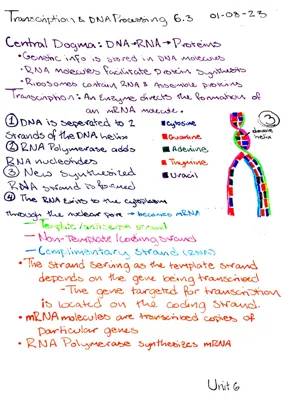 Transcription & DNA Processing 6.3 01-03-23
Central Dogma: DNA→RNA→Proteins
• Genetic info is stored in DNA molecules
• RNA molecules facilitate Protein Synthesis
• Ribosomes contain RNA & Assemble proteins
Transcription: An Enzyme directs the formation of
an mRNA molecule.
① DNA is seperated to 2
strands of the DNA helix
② RNA Polymerase adds
RNA nucleotides
③ New Synthesized
RNA strand is formed
④ The RNA Exits to the cytoplasm
through the nuclear pore → becomes mRNA
Cytosine
Guanine
Adenine
Thymine
Uracil
③
double
helix
– Template/antisense strand
– Non-Template/coding strand
– Complimentary strand (RNA)
• The strand serving as the template strand
depends on the gene being transcribed
– The gene targeted for transcription
is located on the coding strand.
• mRNA molecules are transcribed copies of
particular genes
• RNA Polymerase synthesizes mRNA
Unit 6